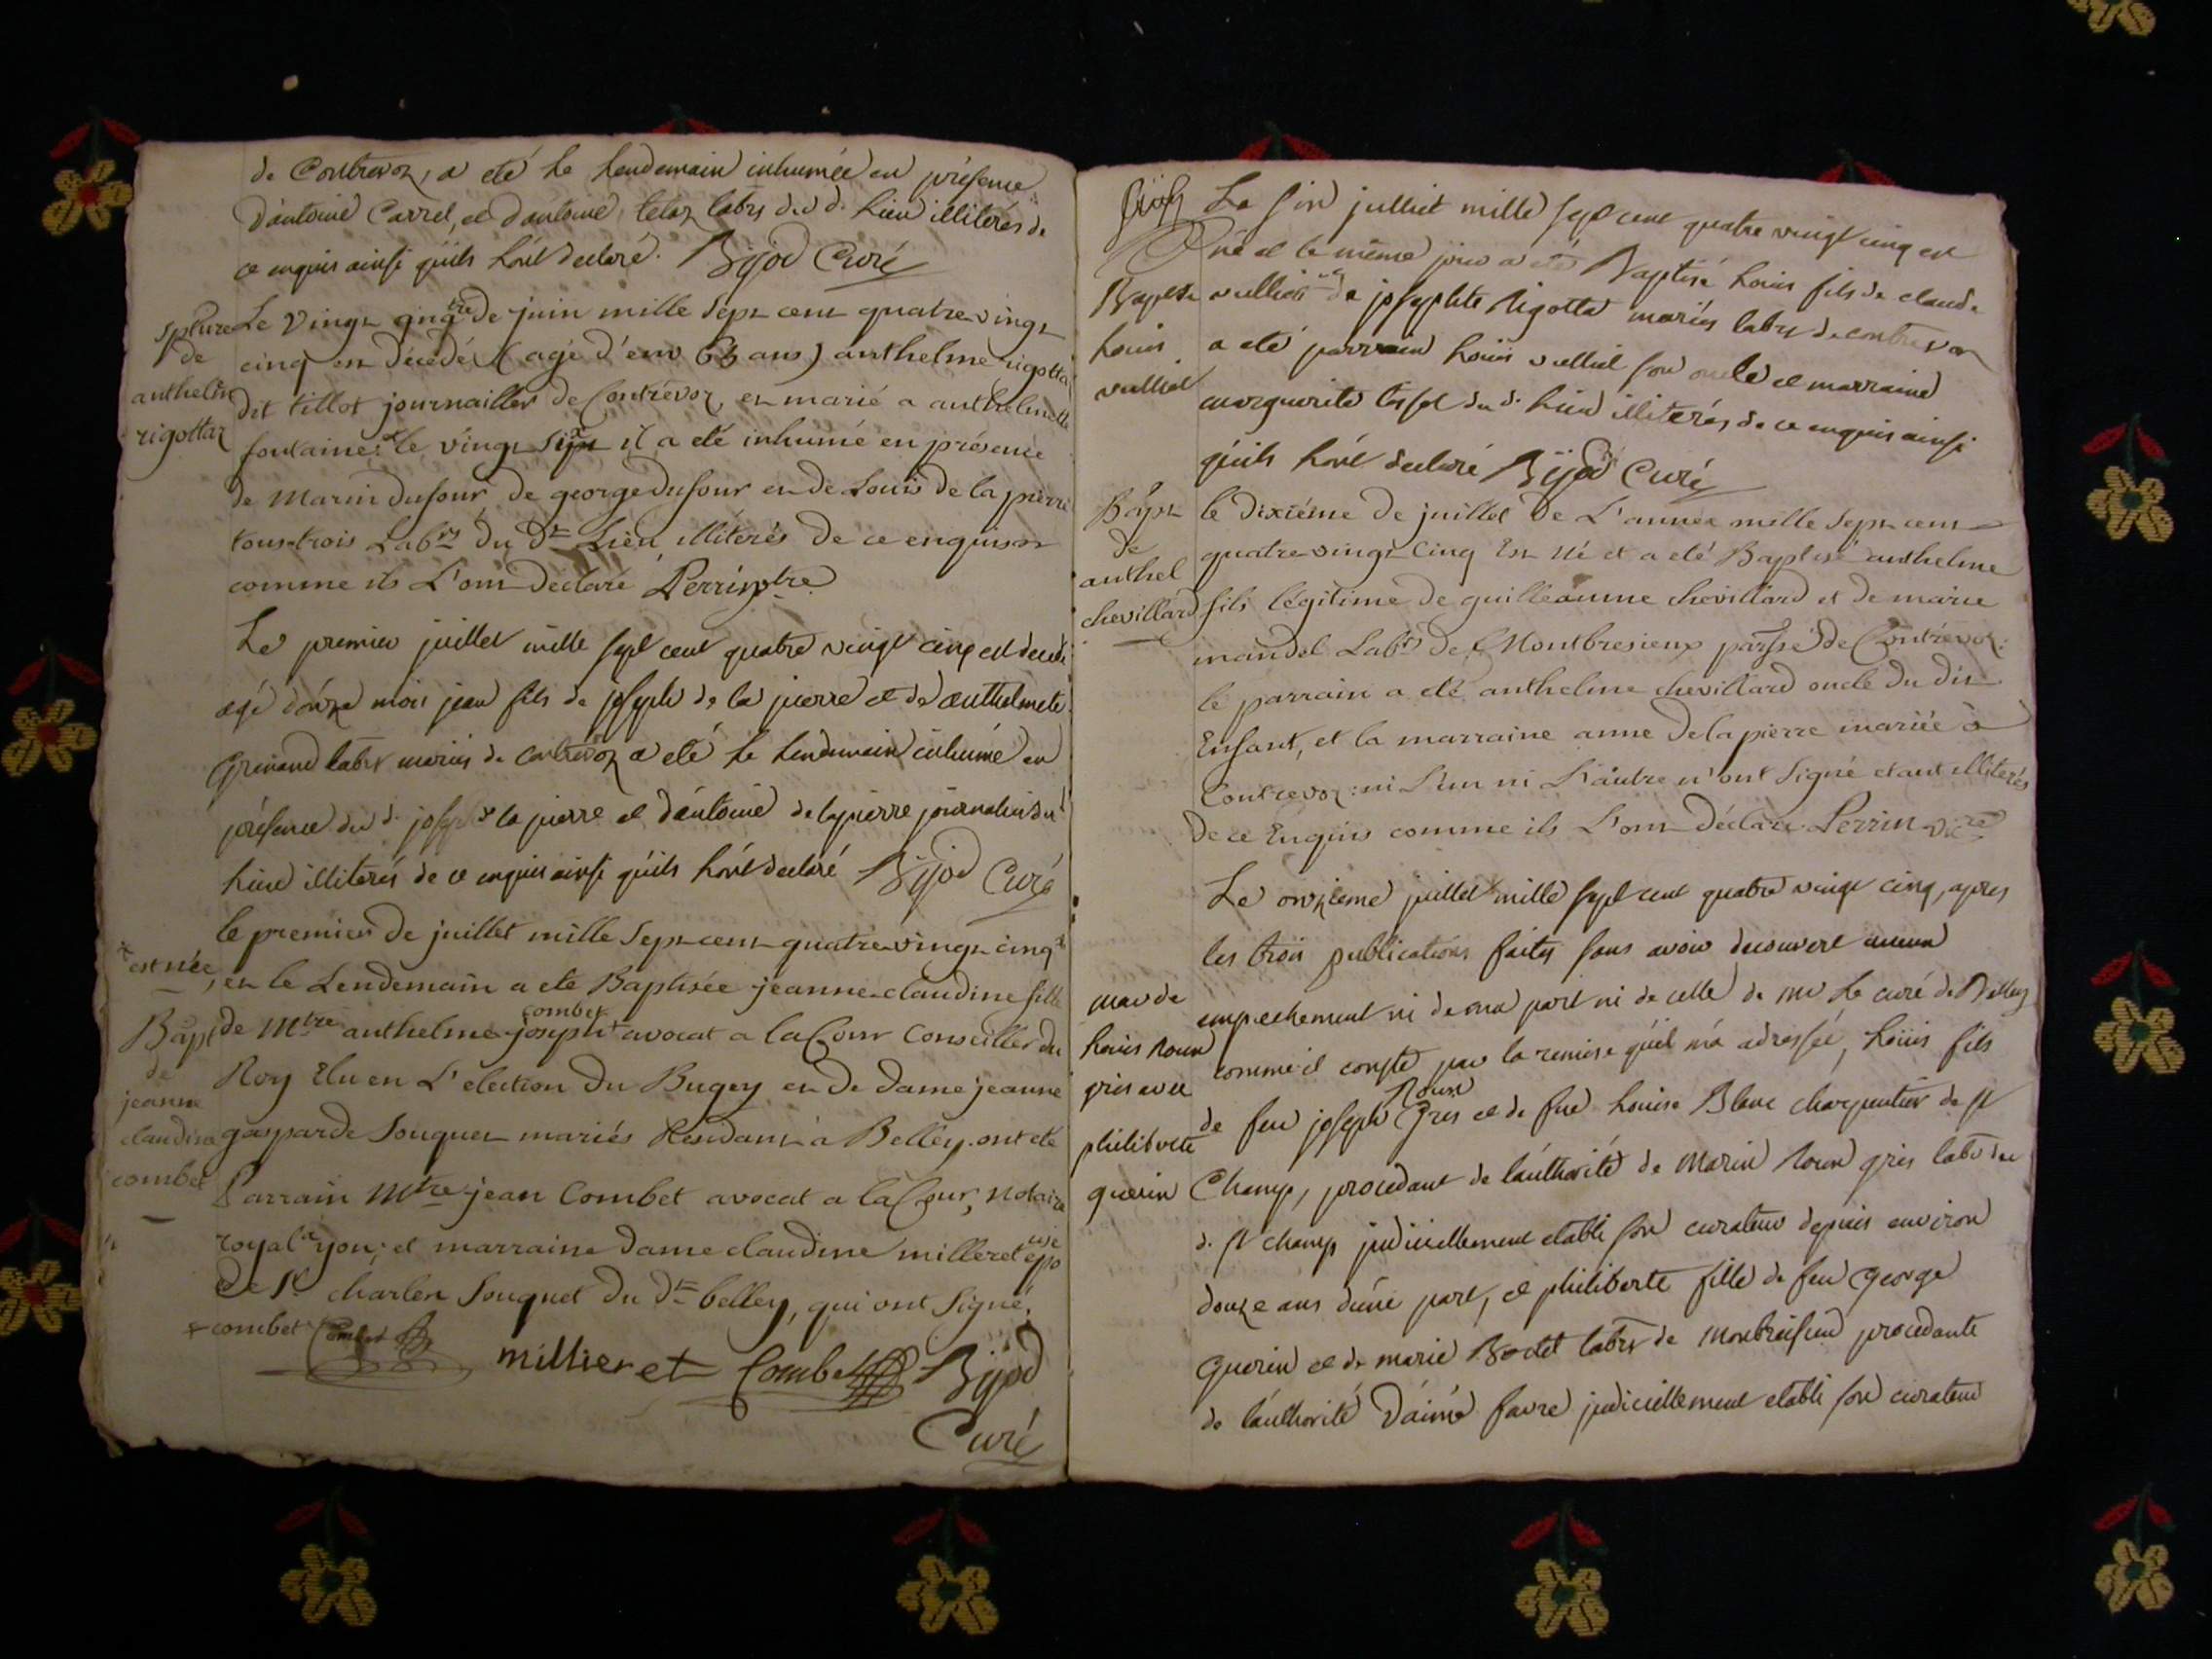 de Contrevoz, a eté le lendemain inhumée en présence
d'antoine Carrel, et d'antoine telaz labrs du d. lieu illiterés de
ce enquis ainsi qu'ils l'ont declaré. Bijod Curé
Spture
de
anthelm
rigottaz
Le Vingt de juin mille sept cent quatre vingt
cinq est décédé (agé d'env 63 ans) anthelme rigotta
dit tillot journaillier de Contrévoz, et marié a anthelmette
fontaine le vingt six il a eté inhumé en présence
de Marin dufour, de george dufour et de Louis de la pierre
tous trois Labrs du dt Lieu illitérés de ce enquis
comme ils L'ont Declaré Perrin
Le premier juillet mille sept cent quatre vingt cinq est decedé
agé d'onze mois jean fils de joseph de la pierre et de anthelmete
Grinand labrs mariés de contrevoz a eté le lendemain inhumé en
présence du d. joseph la pierre et d'antoine de la pierre journaliers du d
lieu illiterés de ce enquis ainsi qu'ils l'ont declaré Bijod Curé
le premier de juillet mille Sept cent quatre vingt cinq
est née,
et le Lendemain a eté Baptisée jeanne claudine fille
Bapt
de
jeanne
claudine
combet
de Mtre anthelme joseph combet avocat a la Cour Conseiller du
Roy Elu en L'election Du Bugey et De Dame jeanne
gasparde Souquet mariés Residant à Belley. ont eté
Parrain Mtre jean Combet avocat a la Cour, Notaire
royal yon; et marraine Dame claudine milleret
De Sr charles Souquet Du Dt belley, qui ont Signé.
combet Combet millieret Combet Bijod
Curé
Le six julliet mille sept cent quatre vingt cinq est
né et le même jour a eté Baptisé louis fils de claude
Bapte
louis
vulliet
vulliet de josephte Rigotta mariés labrs de contrevoz
a eté parrain louis vulliet son oncle et marraine
marguerite du d. lieu illiterés de ce enquis ainsi
qu'ils l'ont declaré Bijod Curé
Bapt
de
anthel
chevillard
le dixiéme De juillet De L'année mille Sept cent
quatre vingt Cinq Est Né et a eté Baptisé anthelme
fils légitime de guilleaume chevillard et de marie
mandel Labrs de Montbresieux parsse de Contrévoz:
le parrain a eté anthelme chevillard oncle du dit
Enfant, et la marraine anne Delapierre mariée à
Contrevoz: ni L'un ni L'autre n'ont Signé etant illiterés
De ce Enquis comme ils L'ont Déclaré Perrin vic
Le onzieme juillet mille sept cent quatre vingt cinq, apres
les trois publications faites sans avoir decouvert aucun
mar de
louis Roux
gris avec
philiberte
guerin
empechement ni de ma part ni de celle de mr Le curé de Belley
comme il conste par la remise qu'il m'a adressée, louis fils
de feu joseph Roux Gres et de feue louise Blanc charpentier de st
Champ, procedant de l'authorité de Marin Roux gris labr du
d. st champ judiciellement etabli son curateur depuis environ
douze ans d'une part, et philiberte fille de feu george
Guerin et de marie Bortet labrs de montbreisieu procedante
de l'authorité d'aimé favre judiciellement etabli son curateur